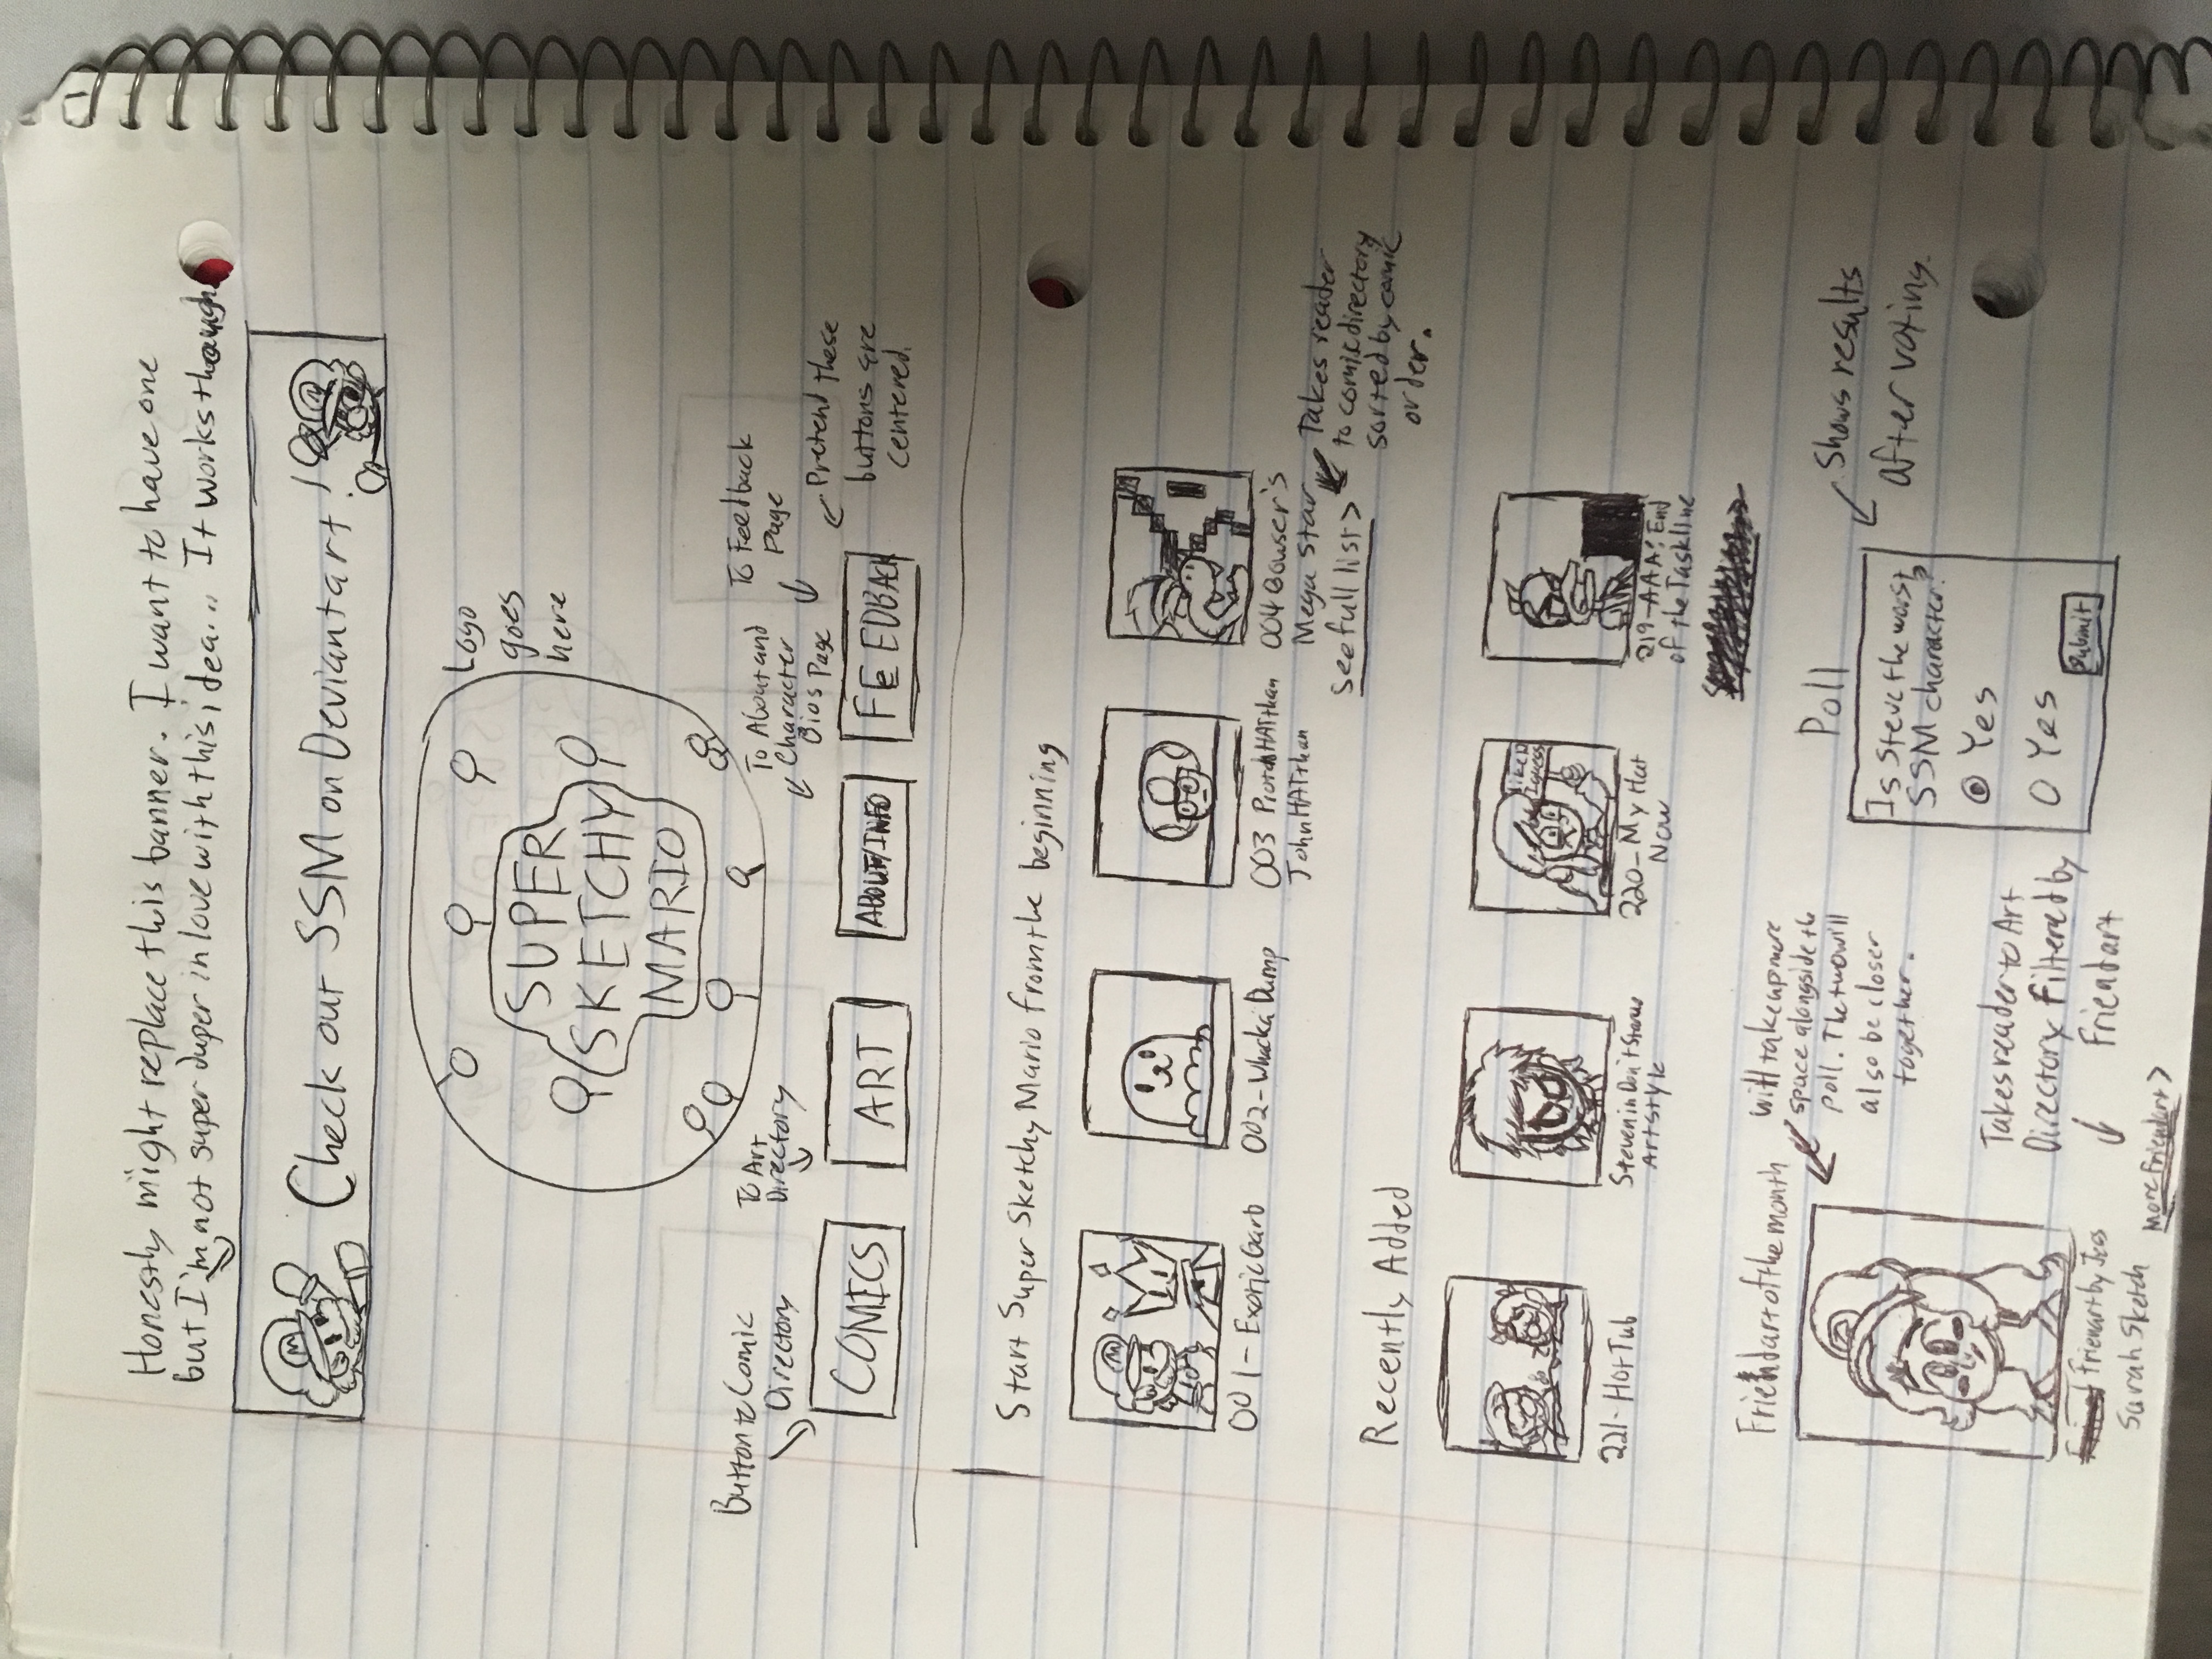 Honestly might replace this banner. I want to have one
but I'm not super duper in love with this idea... It works though.
M
Check out SSM on Deviantart!
M
Logo
goes
here
SUPER
SKETCHY
MARIO
Button to Comic
Directory
To Art
Directory
To About and
Character
Bios Page
To Feedback
Page
Pretend these
buttons are
centered.
COMICS
ART
ABOUT/INFO
FEEDBACK
Start Super Sketchy Mario from the beginning
M
001- Exotic Garb
002- Whacka Dump
003 ProtonHATthan
JohnHATthan
004 Bowser's
Mega Star
see full list >
Takes reader
to comic directory
sorted by comic
order.
Recently Added
like it
I guess
221- Hot Tub
Steven in Don't Starve
Artstyle
220- My Hat
Now
219- AAA: End
of the Taskline
Friendart of the month
will take up more
space alongside the
poll. The two will
also be closer
together.
Poll
Shows results
after voting.
Is Steve the worst
SSM character?
Yes
Yes
Submit
Takes reader to Art
Directory Filtered by
Friendart
Frienart by Jess
Sarah Sketch
More Friendart >